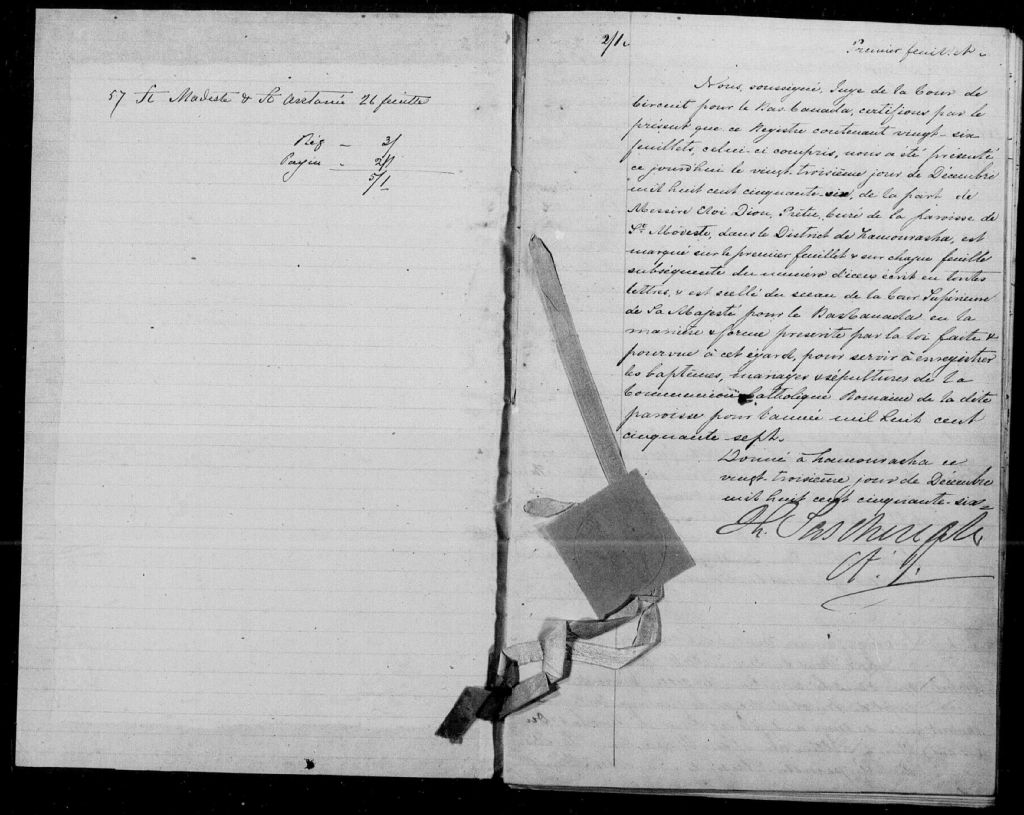 57 St Modeste & St Arsène 26 feuilles
Rég - 3/
Papier - 2/1
5/1
2/1.
Premier feuillet.
Nous, soussigné, Juge de la Cour de
Circuit pour le Bas Canada, certifions par le
présent que ce Registre contenant vingt-six
feuillets, celui-ci compris, nous a été présenté
ce jourdhui le vingt troisième jour de Décembre
mil huit cent cinquante-six, de la part de
Messire Eloi Dion, Prêtre, Curé de la paroisse de
St Modeste, dans le District de Kamouraska, est
marqué sur le premier feuillet & sur chaque feuillet
subséquente du numéro d'iceux écrit en toutes
lettres, & est scellé du sceau de la Cour Supérieure
de Sa Majesté pour le Bas Canada en la
manière & forme prescrite par la loi faite &
pourvue à cet égard, pour servir à enregistrer
les baptèmes, mariages & sépultures de la
Communion Catholique Romaine de la dite
paroisse pour l'année mil huit cent
cinquante-sept.
Donné à Kamouraska ce
vingt-troisième jour de Décembre
mil huit cent cinquante-six